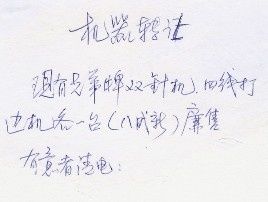 机器转让
现有兄弟牌双针机、四线打
边机各一台（八成新）廉售
有意者请电：